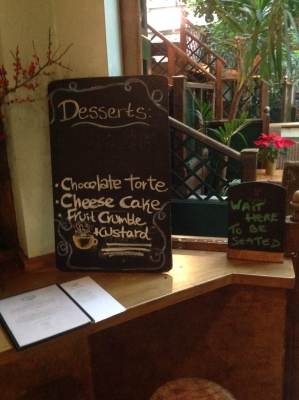 Desserts:
• Chocolate Torte
• Cheese Cake
• Fruit Crumble
& Custard
WAIT
HERE
TO BE
SEATED